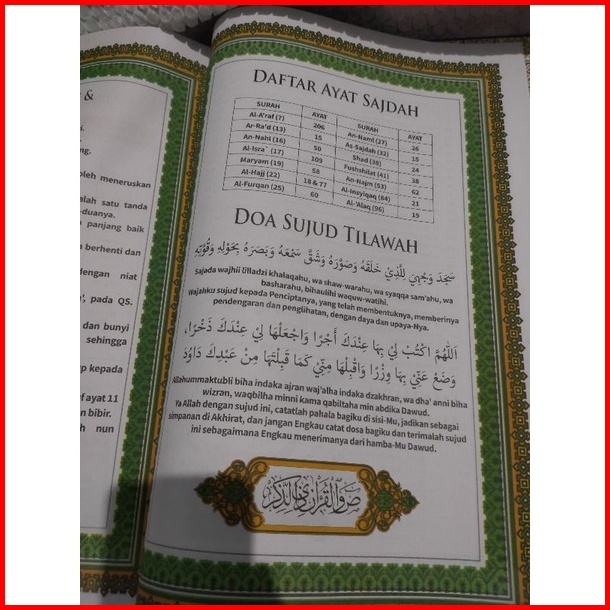 &
.
ng.
oleh meneruskan
alah satu tanda
-duanya.
panjang baik
n berhenti dan
dengan niat
', pada QS.
dan bunyi
sehingga
p kepada
f ayat 11
n bibir.
h nun
DAFTAR AYAT SAJDAH
SURAH AYAT SURAH AYAT
Al-A'raf (7) 206 An-Naml (27) 26
Ar-Ra'd (13) 15 As-Sajdah (32) 15
An-Nahl (16) 50 Shad (38) 24
Al-Isra` (17) 109 Fushshilat (41) 38
Maryam (19) 58 An-Najm (53) 62
Al-Hajj (22) 18 & 77 Al-Insyiqaq (84) 21
Al-Furqan (25) 60 Al-'Alaq (96) 19
DOA SUJUD TILAWAH
سَجَدَ وَجْهِيَ لِلَّذِيْ خَلَقَهُ وَصَوَّرَهُ وَشَقَّ سَمْعَهُ وَبَصَرَهُ بِحَوْلِهِ وَقُوَّتِهِ
Sajada wajhii lilladzi khalaqahu, wa shaw-warahu, wa syaqqa sam'ahu, wa
basharahu, bihaulihi waquw-watihi.
Wajahku sujud kepada Penciptanya, yang telah membentuknya, memberinya
pendengaran dan penglihatan, dengan daya dan upaya-Nya.
اَللّٰهُمَّ اكْتُبْ لِيْ بِهَا عِنْدَكَ أَجْرًا وَاجْعَلْهَا لِيْ عِنْدَكَ ذُخْرًا،
وَضَعْ عَنِّيْ بِهَا وِزْرًا وَاقْبَلْهَا مِنِّيْ كَمَا قَبِلْتَهَا مِنْ عَبْدِكَ دَاوُدَ
Allahummaktubli biha indaka ajran waj'alha indaka dzakhran, wa dha' anni biha
wizran, waqbilha minni kama qabiltaha min abdika Dawud.
Ya Allah dengan sujud ini, catatlah pahala bagiku di sisi-Mu, jadikan sebagai
simpanan di Akhirat, dan jangan Engkau catat dosa bagiku dan terimalah sujud
ini sebagaimana Engkau menerimanya dari hamba-Mu Dawud.
صٓ وَالْقُرْاٰنِ ذِى الذِّكْرِ